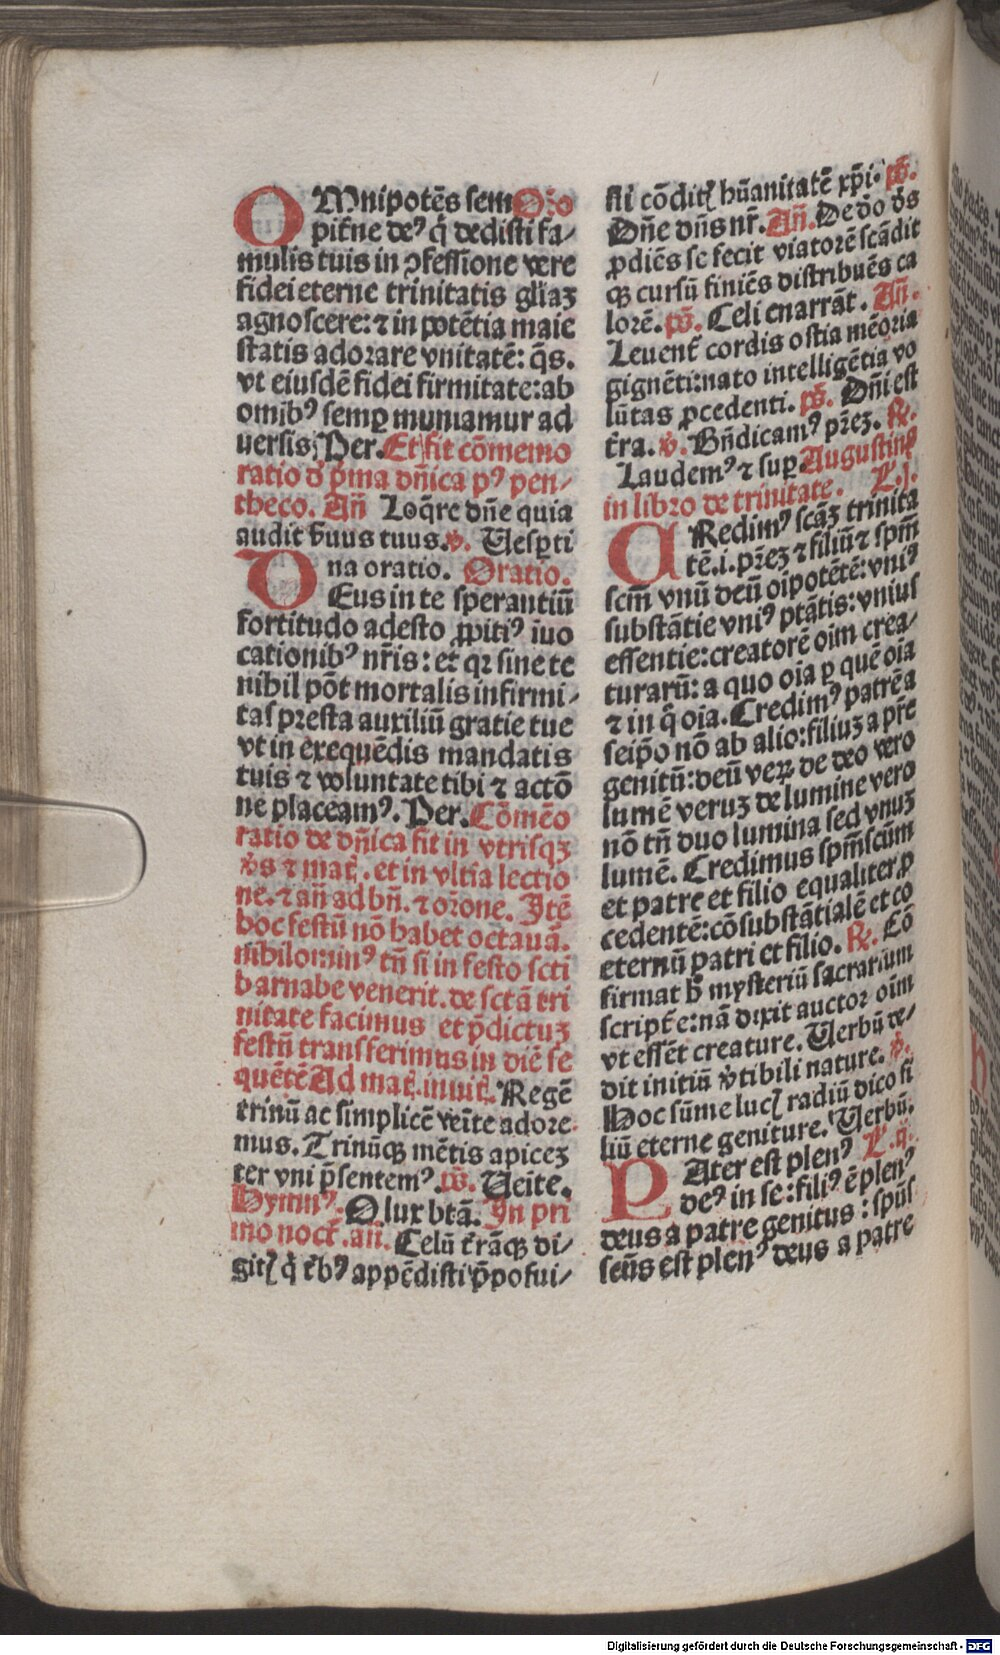 OMnipotēs sem Oꝛo
pit̄ne deꝰ q̄ dedisti fa⸗
mulis tuis in ꝯfessione vere
fidei eterne trinitatis gl̄iaꝫ
agnoscere: ⁊ in potētia maie
statis adorare vnitatē: q̄s.
vt eiusdē fidei firmitate: ab
omibꝰ semꝑ muniamur ad
uersis; Per. Et fit cōmemo
ratio d̄ p̄ma dn̄ica pꝰ pen⸗
theco. An̄ Loq̄re dn̄e quia
audit ẜuus tuus. ꝟ. Uesꝑti
na oratio. Oratio.
DEus in te sperantiū
fortitudo adesto ꝓpitiꝰ iuo
cationibꝰ nr̄is: et qꝛ sine te
nihil pōt mortalis infirmi⸗
tas presta auxiliū gratie tue
vt in exequēdis mandatis
tuis ⁊ voluntate tibi ⁊ actō
ne placeamꝰ. Per. Cōmēo
ratio de dn̄ica fit in vtrisqꝫ
vs̄ ⁊ mat̄. et in vltīa lectio
ne. ⁊ an̄ ad bn̄. ⁊ or̄one. Itē
hoc festū nō habet octauā.
nihilominꝰ tn̄ si in festo scti
barnabe venerit. de sctā tri
nitate facimus et p̄dictuꝫ
festū transferimus in diē se
quētē Ad mat̄. inuit̄. Regē
trinū ac simplicē veīte adore
mus. Trinūqꝫ mētis apiceꝫ
ter vni p̄sentemꝰ. ps̄. Ueīte.
Hymnꝰ. O lux btā. In pri
mo noct̄. an̄. Celū t̄rāqꝫ di⸗
gitꝭ q̄ t̄bꝰ appēdisti p̄posui⸗
sti cōditꝭ hūanitatē xp̄i. ps̄.
Dn̄e dn̄s nr̄. An̄. De dō ds̄
ꝓdiēs se fecit viatorē scādit
qꝫ cursū finiēs distribuēs ca
lorē. ps̄. Celi enarrāt. An̄.
Leuent̄ cordis ostia mēoria
gignēti: nato intelligētia vo
lūtas ꝓcedenti. ps̄. Dn̄i est
t̄ra. ꝟ. Bn̄dicamꝰ pr̄eꝫ. ℟.
Laudemꝰ ⁊ suꝑ. Augustinꝰ
in libro de trinitate. L. j.
CRedimꝰ scāꝫ trinita
tē. i. pr̄eꝫ ⁊ filiū ⁊ spm̄
scm̄ vnū deū oipotētē: vniꝰ
substātie vniꝰ ptātis: vnius
essentie: creatorē oim crea⸗
turarū: a quo oia ꝑ quē oia
⁊ in q̄ oia. Credimꝰ patrē a
seip̄o nō ab alio: filiuꝫ a pr̄e
genitū: deū veꝝ de deo vero
lumē veruꝫ de lumine vero
nō tn̄ duo lumina sed vnuꝫ
lumē. Credimus spm̄ scūm
et patre et filio equaliter ꝓ
cedentē: cōsubstātialē et co
eternū patri et filio. ℟. Cō
firmat h̄ mysteriū sacrarium
script̄e: nā dixit auctor oim
vt essēt creature. Uerbū de⸗
dit initiū v̄tibili nature. ꝟ.
Hoc sūme lucꝭ radiū dico fi
liū eterne geniture. Uerbū.
PAter est plenꝰ L. ij.
deꝰ in se: filiꝰ ē plenꝰ
deus a patre genitus: spūs
scūs est plenꝰ deus a patre
Digitalisierung gefördert durch die Deutsche Forschungsgemeinschaft - DFG